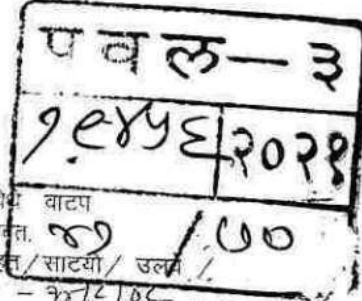 प व ल — ३
१९४५६ २०२१
वाटप
४१ / ७०
/ साटयो / उलवे /